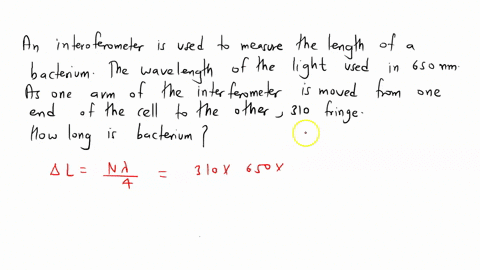 An interoferometer is used to measure the length of a
bacterium. The wavelength of the light used in 650 nm.
As one arm of the interferometer is moved from one
end of the cell to the other, 310 fringe.
How long is bacterium?
ΔL = Nλ/4 = 310 x 650 x